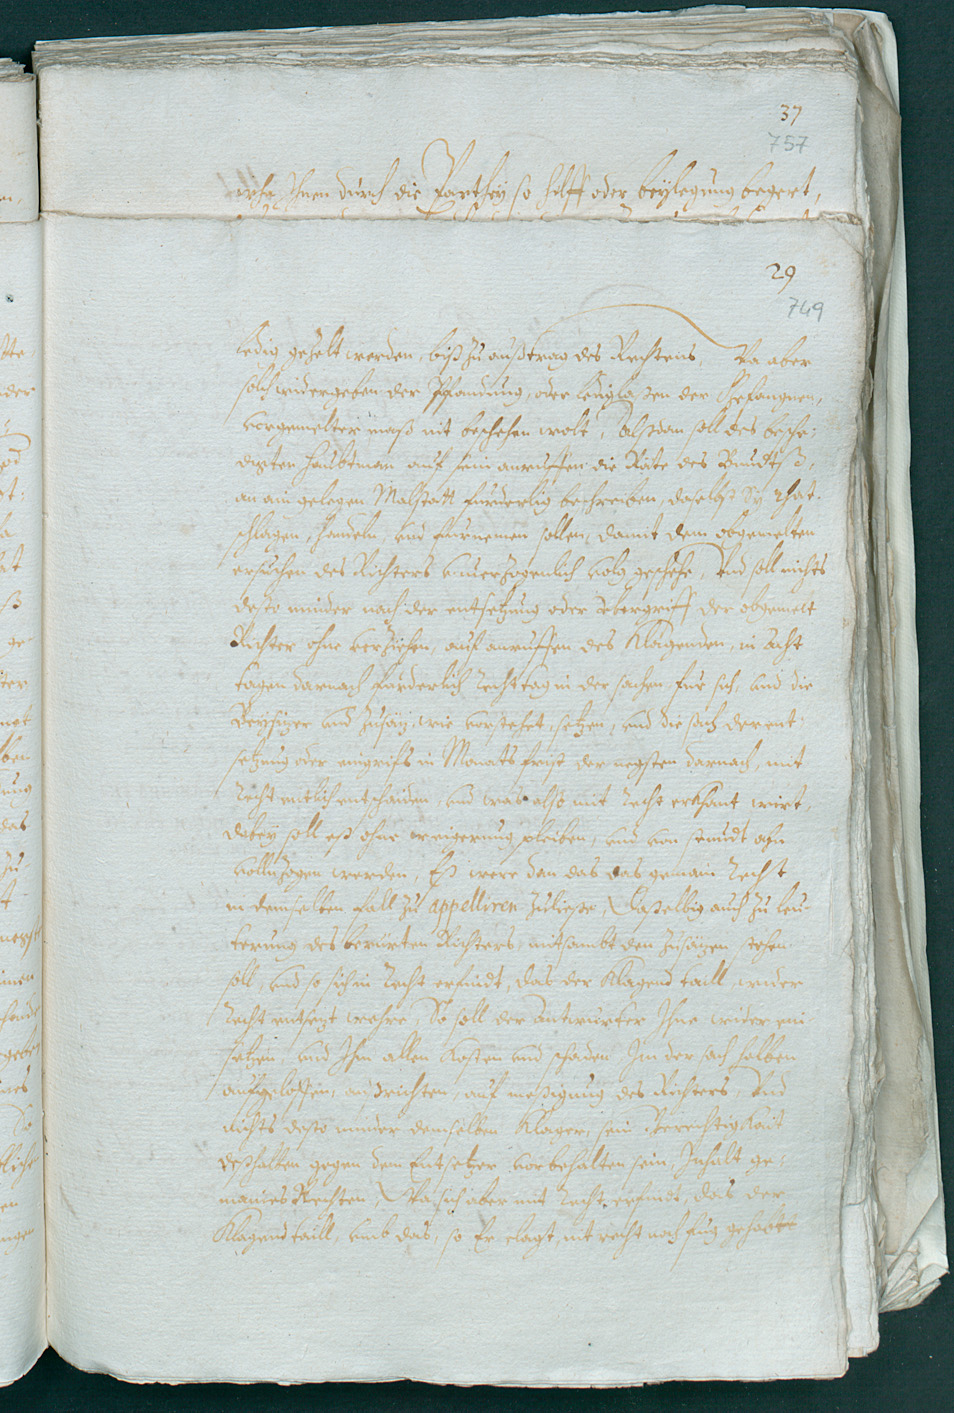 37
757
wehe Ihnen durch die Parthey so hilff oder beylegung begert,
29
749
ledig gezelt werden, biß zu außtrag des Rechtens, Da aber
solch widergeben der Pfandung, oder ledig laßen der Gefangnen,
vorgemelter maß nit beschehen wolt, Alßdan soll des besche-
digten Haubtman auf sein anruffen die Räte des Bundtß,
an ain gelegen Malstatt furderlig beschreiben, daselbst Sy Rhat-
schlagen, handeln, und furnemen sollen, damit dem obgemelten
ersuchen des Richters unverzogenlich volg geschehe, Und soll nichts
desto minder nach der entsetzung oder Ubergriff der obgemelt
Richter ohne verziehen, auf anruffen des Klagenden, in Acht
tagen darnach furderlich Rechttag in der sachen fur sich, und die
Beysizer und Zusäz, wie vorstehet, setzen, und die sach der ent-
setzung oder eingrifs in Monats frist der negsten darnach, mit
Recht entlich entschaiden, und was also mit Recht erkhant wirt,
dabey soll eß ohne waigerung pleiben, und von stundt ahn
vollnzogen werden, Eß were dan das das gemain Recht
in demselben fall zu appelliren zuließe, Daßelbig auch zu leu-
terung des berurten Richters, mitsambt den Zusäzen stehen
soll, und so sich in Recht erfindt, das der Klagend taill, wider
Recht entsezt wehre, So soll der Antwurter Ihne wider ein-
setzen, und Ihm allen Kosten und schaden Im der sach halben
aufgeloffen, außrichten, auf meßigung des Richters, Und
Nichts desto minder demselben Klager, sein Gerechtigkait
deßhalben gegen dem Entsetzer vorbehalten sein, Inhalt ge-
maines Rechten, Da sich aber mit Recht erfindt, das der
Klagend taill, umb das, so Er clagt, nit recht noch fug gehabt